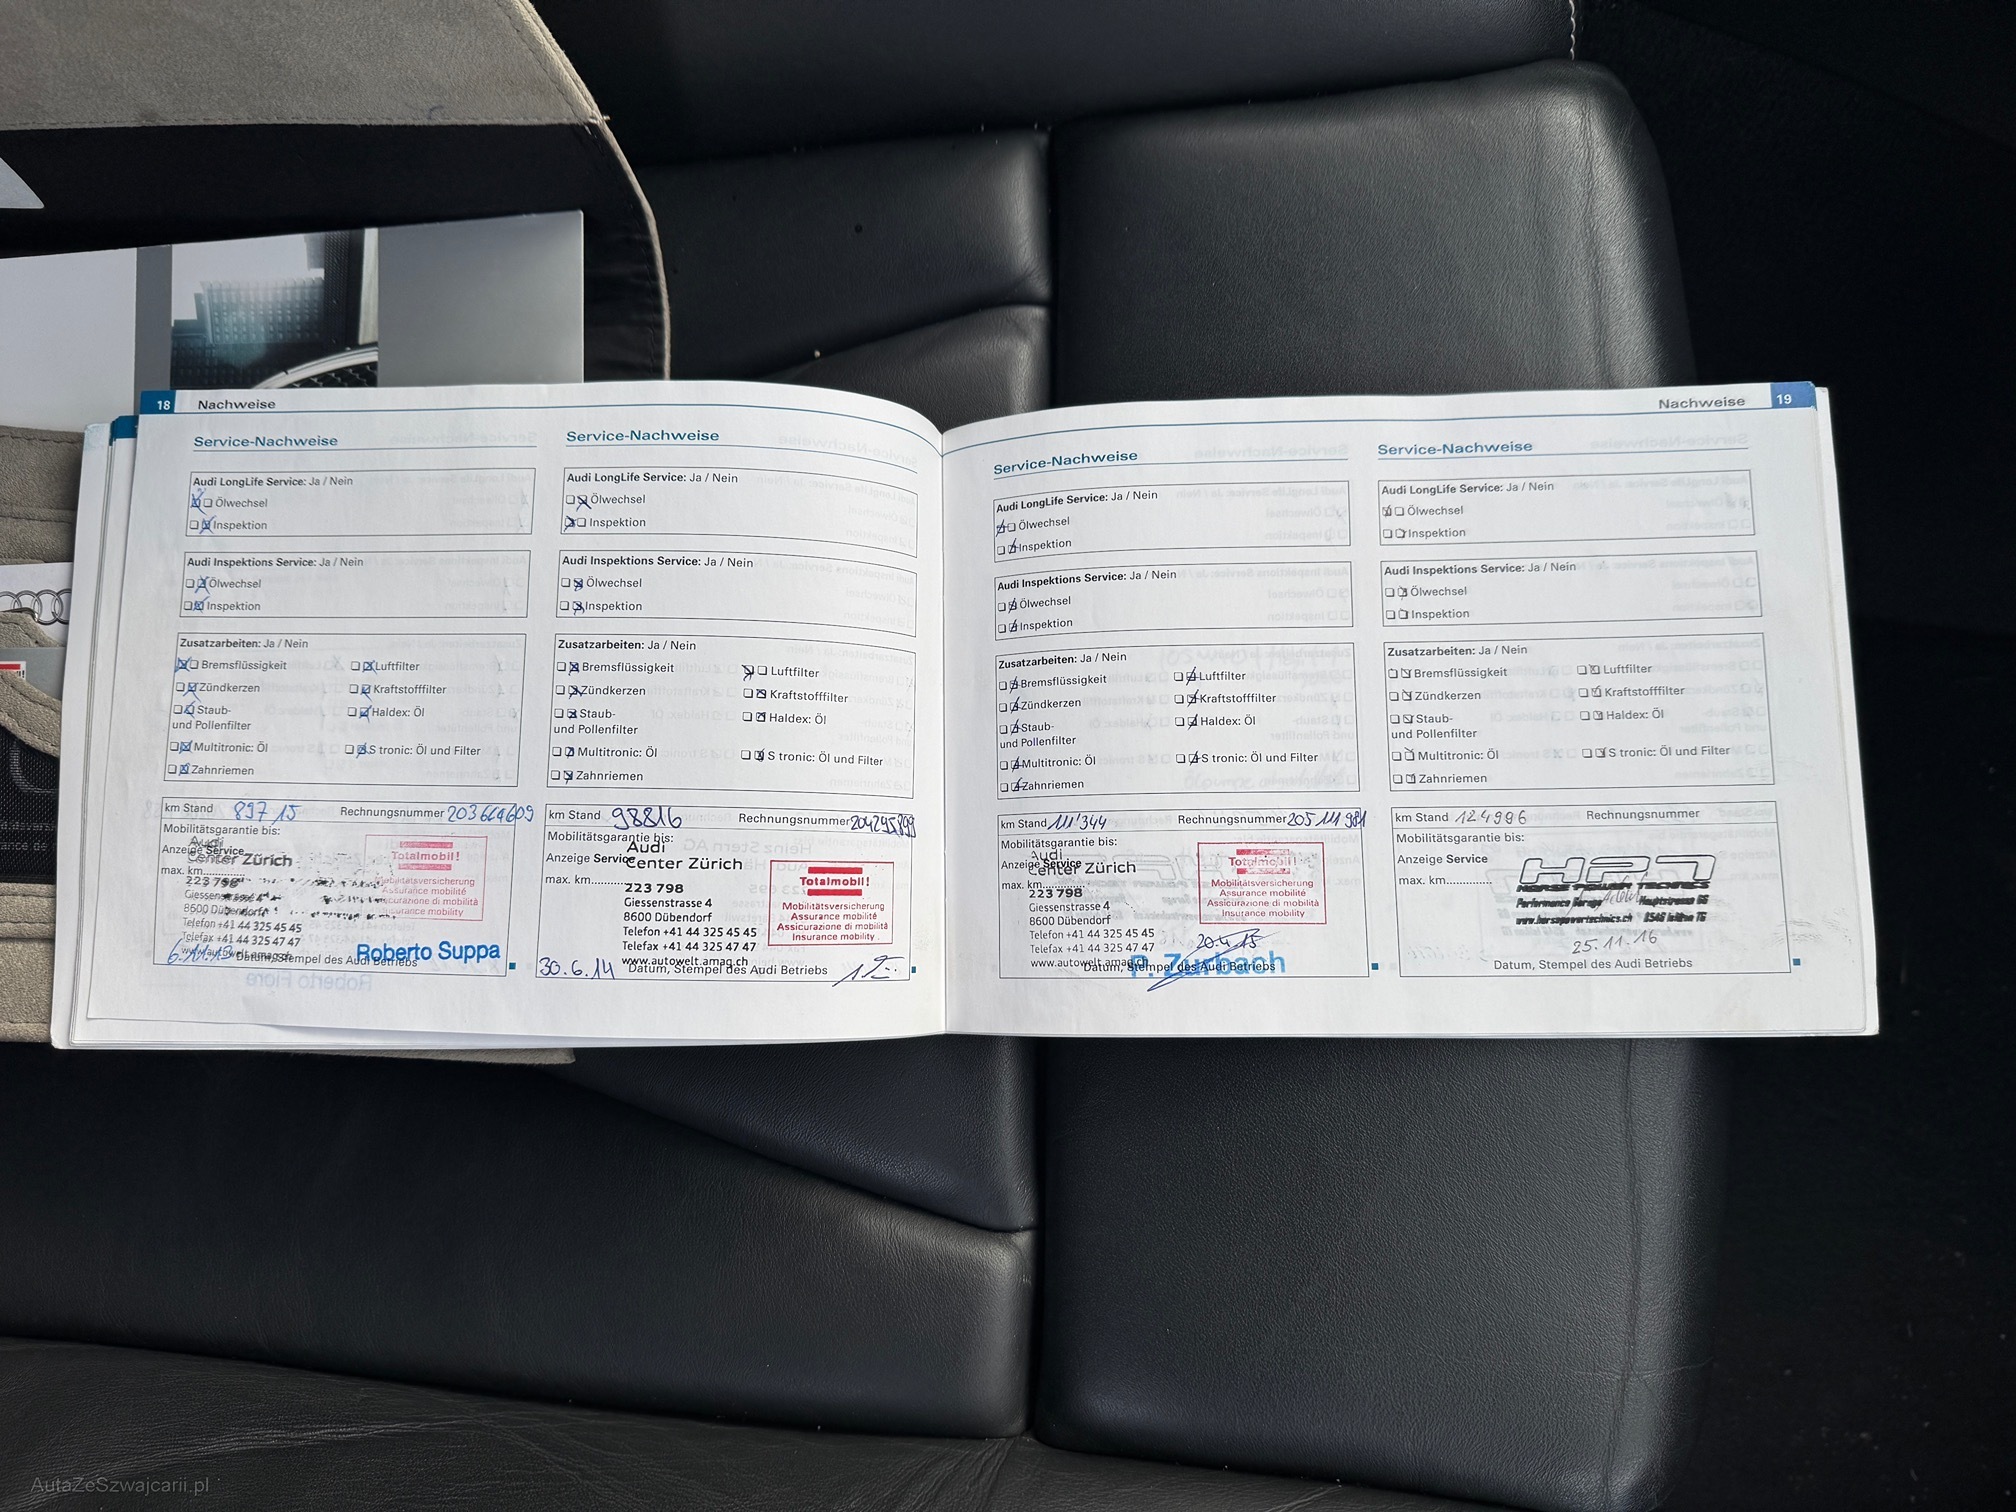 18 Nachweise
Service-Nachweise
Audi LongLife Service: Ja / Nein
Ölwechsel
Inspektion
Audi Inspektions Service: Ja / Nein
Ölwechsel
Inspektion
Zusatzarbeiten: Ja / Nein
Bremsflüssigkeit Luftfilter
Zündkerzen Kraftstofffilter
Staub- Haldex: Öl
und Pollenfilter
Multitronic: Öl S tronic: Öl und Filter
Zahnriemen
km Stand 89715 Rechnungsnummer
Mobilitätsgarantie bis:
Audi
Anzeige Service
Center Zürich
max. km
223 798
Giessenstrasse 4
8600 Dübendorf
Telefon +41 44 325 45 45
Telefax +41 44 325 47 47
www.autowelt.amag.ch
Totalmobil!
Mobilitätsversicherung
Assurance mobilité
Assicurazione di mobilità
Insurance mobility
Roberto Suppa
6.11.13 Datum, Stempel des Audi Betriebs
Service-Nachweise
Audi LongLife Service: Ja / Nein
Ölwechsel
Inspektion
Audi Inspektions Service: Ja / Nein
Ölwechsel
Inspektion
Zusatzarbeiten: Ja / Nein
Bremsflüssigkeit Luftfilter
Zündkerzen Kraftstofffilter
Staub- Haldex: Öl
und Pollenfilter
Multitronic: Öl S tronic: Öl und Filter
Zahnriemen
km Stand 98816 Rechnungsnummer 204295899
Mobilitätsgarantie bis:
Audi
Anzeige Service
Center Zürich
max. km............
223 798
Giessenstrasse 4
8600 Dübendorf
Telefon +41 44 325 45 45
Telefax +41 44 325 47 47
www.autowelt.amag.ch
Totalmobil!
Mobilitätsversicherung
Assurance mobilité
Assicurazione di mobilità
Insurance mobility
30.6.14 Datum, Stempel des Audi Betriebs
Nachweise 19
Service-Nachweise
Audi LongLife Service: Ja / Nein
Ölwechsel
Inspektion
Audi Inspektions Service: Ja / Nein
Ölwechsel
Inspektion
Zusatzarbeiten: Ja / Nein
Bremsflüssigkeit Luftfilter
Zündkerzen Kraftstofffilter
Staub- Haldex: Öl
und Pollenfilter
Multitronic: Öl S tronic: Öl und Filter
Zahnriemen
km Stand 111'344 Rechnungsnummer 205111981
Mobilitätsgarantie bis:
Audi
Anzeige Service
Center Zürich
max. km............
223 798
Giessenstrasse 4
8600 Dübendorf
Telefon +41 44 325 45 45
Telefax +41 44 325 47 47
www.autowelt.amag.ch
Totalmobil!
Mobilitätsversicherung
Assurance mobilité
Assicurazione di mobilità
Insurance mobility
20.4.15
P. Zurbach
Datum, Stempel des Audi Betriebs
Service-Nachweise
Audi LongLife Service: Ja / Nein
Ölwechsel
Inspektion
Audi Inspektions Service: Ja / Nein
Ölwechsel
Inspektion
Zusatzarbeiten: Ja / Nein
Bremsflüssigkeit Luftfilter
Zündkerzen Kraftstofffilter
Staub- Haldex: Öl
und Pollenfilter
Multitronic: Öl S tronic: Öl und Filter
Zahnriemen
km Stand 124996 Rechnungsnummer
Mobilitätsgarantie bis:
Anzeige Service
max. km...............
HORSE POWER TECHNICS
Performance Garage Hauptstrasse 66
www.horsepowertechnics.ch 8546 Islikon TG
25.11.16
Datum, Stempel des Audi Betriebs
AutaZeSzwajcarii.pl